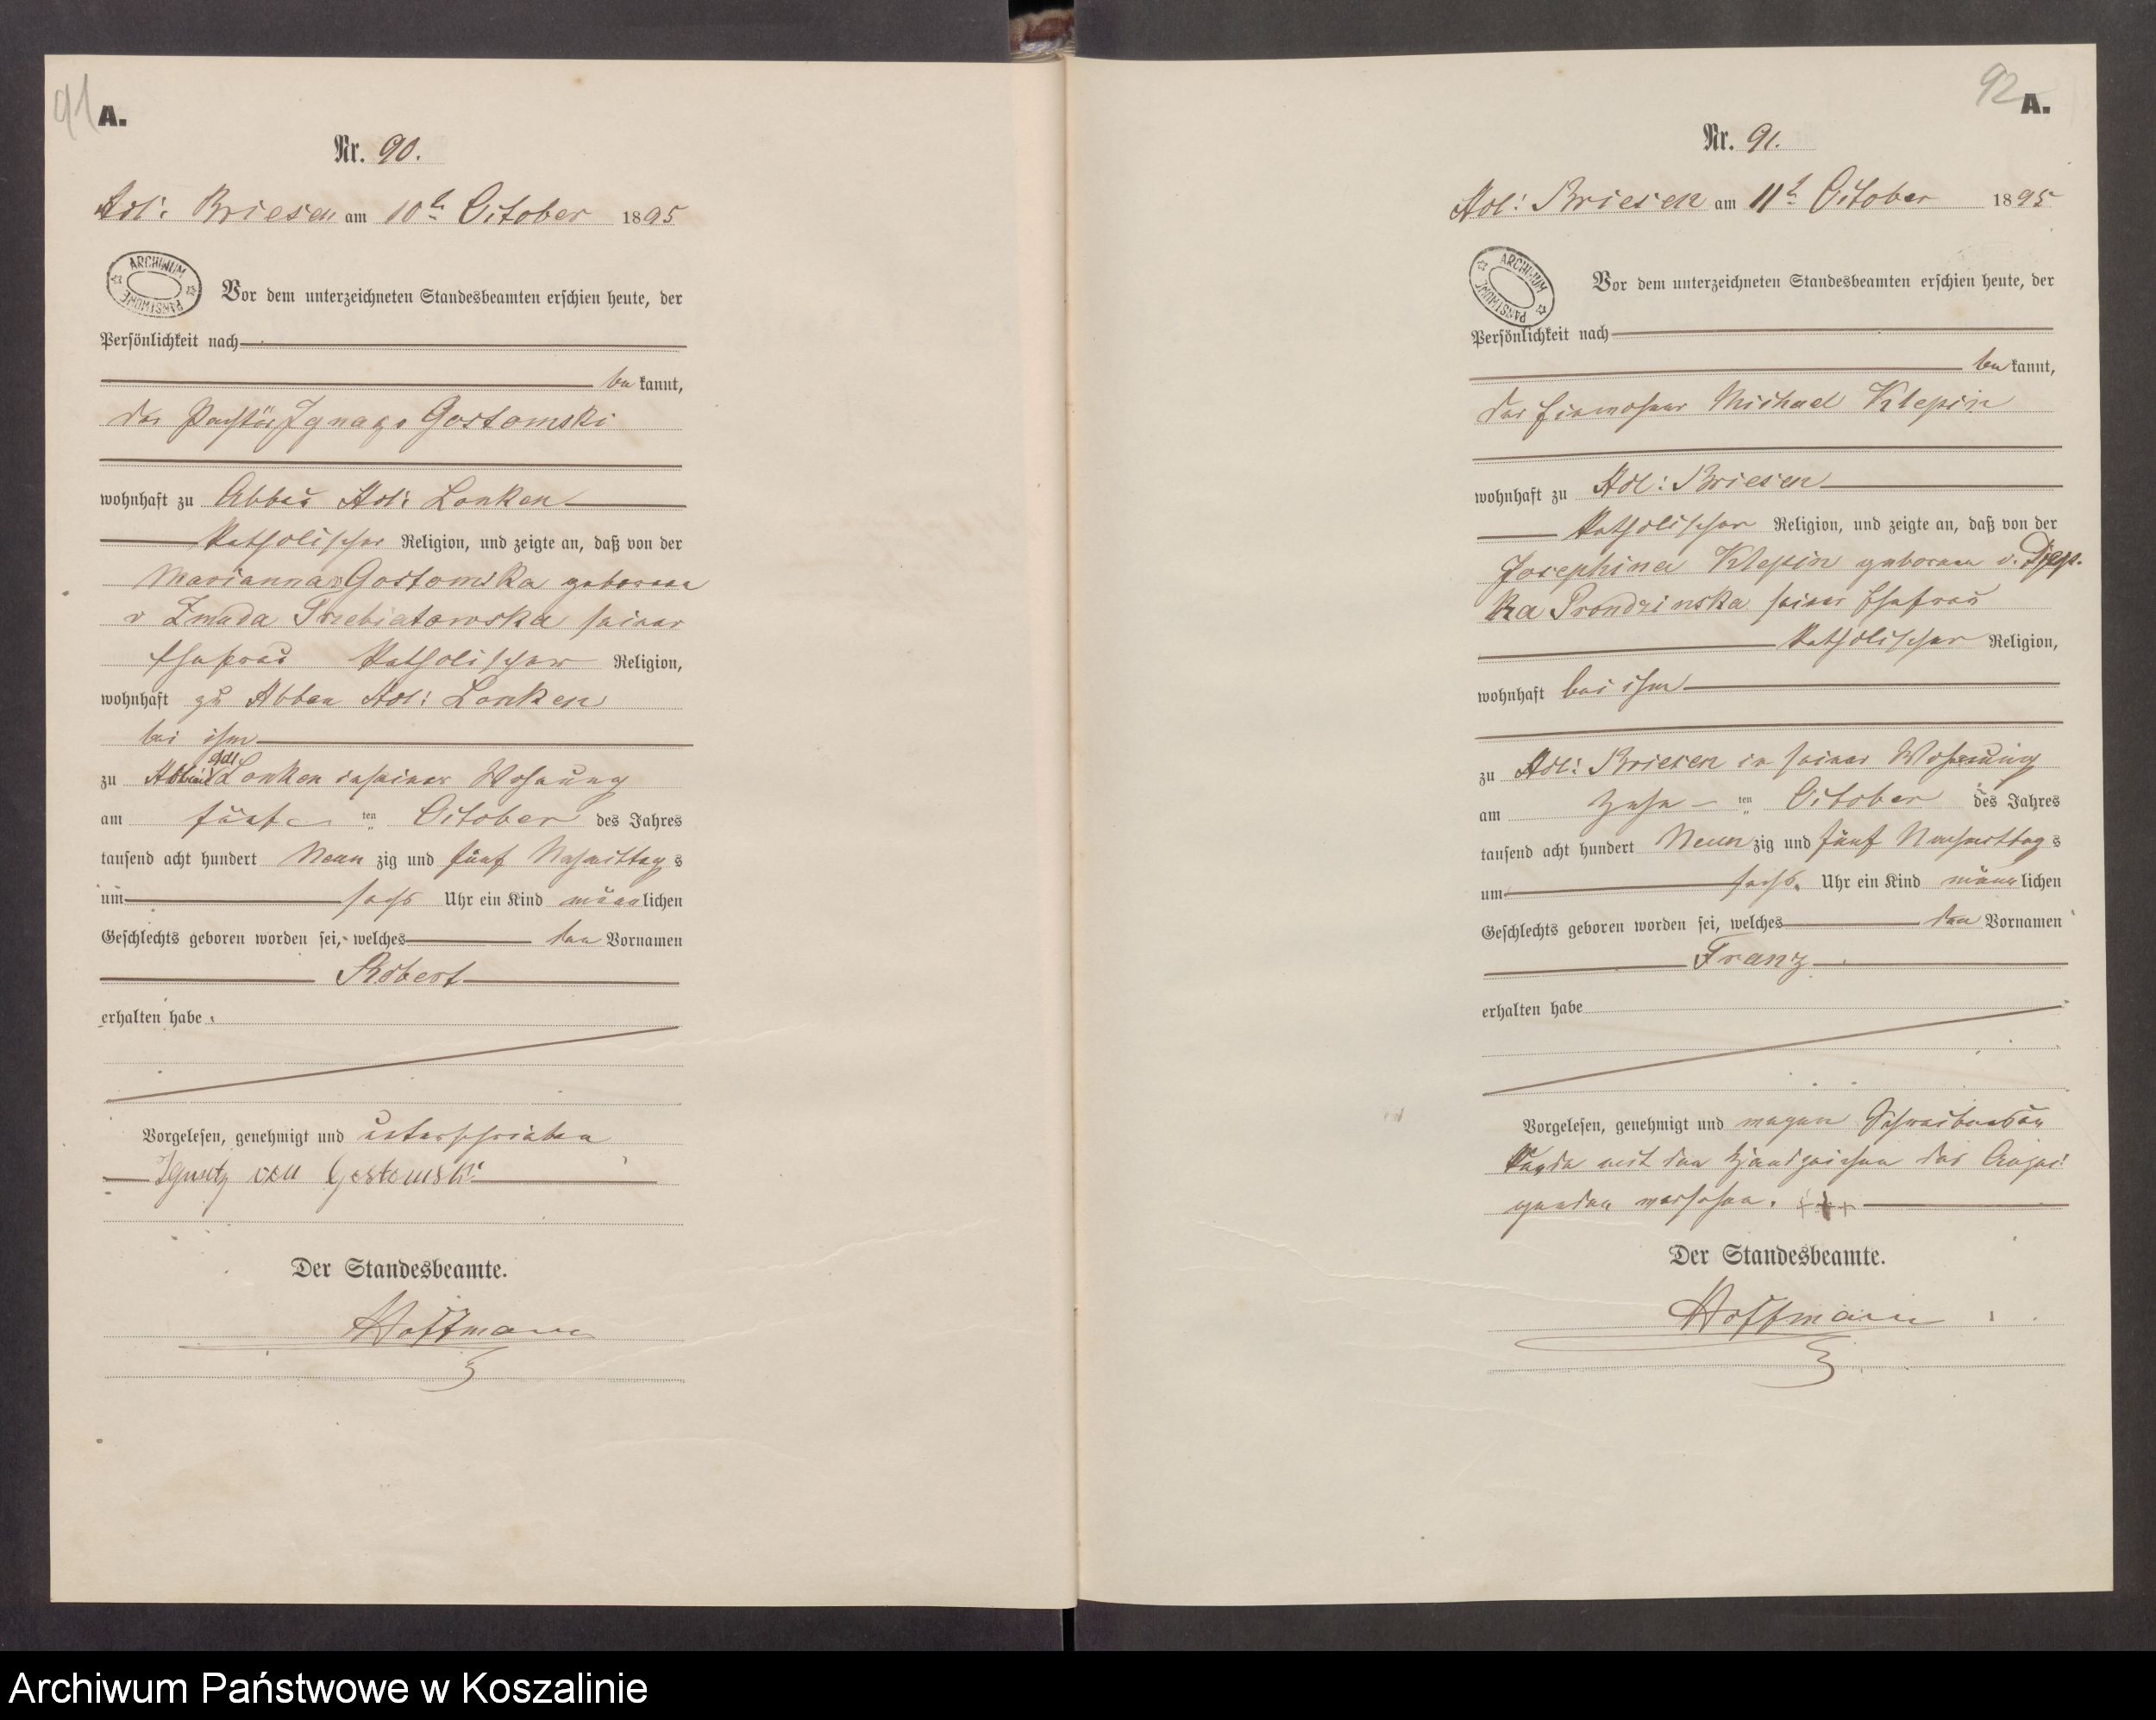 91
A.
Nr. 90.
Adl: Briesen am 10t October 1895
ARCHIWUM PAŃSTWOWE
Vor dem unterzeichneten Standesbeamten erschien heute, der
Persönlichkeit nach
be kannt,
der Pächter Ignatz Gostomski
wohnhaft zu Abbau Adl: Lonken
katholischer Religion, und zeigte an, daß von der
Marianna v Gostomska geborene
v Zmuda Trzebiatowska seiner
Ehefrau katholischer Religion,
wohnhaft zu Abbau Adl: Lonken
bei ihm
zu Abbau Adl. Lonken in seiner Wohnung
am fünf ten October des Jahres
tausend acht hundert Neun zig und fünf Nachmittag s
um sechs Uhr ein Kind männ lichen
Geschlechts geboren worden sei, welches den Vornamen
Robert
erhalten habe
Vorgelesen, genehmigt und unterschrieben
Ignatz von Gostomski
Der Standesbeamte.
Hoffmann
92
A.
Nr. 91.
Adl: Briesen am 11t October 1895
ARCHIWUM PAŃSTWOWE
Vor dem unterzeichneten Standesbeamten erschien heute, der
Persönlichkeit nach
be kannt,
der Einwohner Michael Klepin
wohnhaft zu Adl: Briesen
katholischer Religion, und zeigte an, daß von der
Josephine Klepin geborene v.
ka Prondzinska seiner Ehefrau
katholischer Religion,
wohnhaft bei ihm
zu Adl: Briesen in seiner Wohnung
am zehn ten October des Jahres
tausend acht hundert Neun zig und fünf Nachmittag s
um sechs Uhr ein Kind männ lichen
Geschlechts geboren worden sei, welches den Vornamen
Franz
erhalten habe
Vorgelesen, genehmigt und wegen Schreibensun
kunde mit den Handzeichen des Anzei
genden versehen. +++
Der Standesbeamte.
Hoffmann
Archiwum Państwowe w Koszalinie